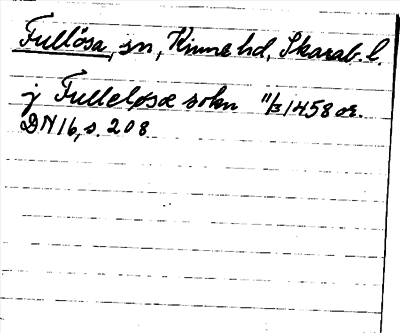 Fullösa, sn, Kinne hd, Skarab. l.
j Fulleløsæ sokn 11/3 1458 or.
DN 16, s. 208.